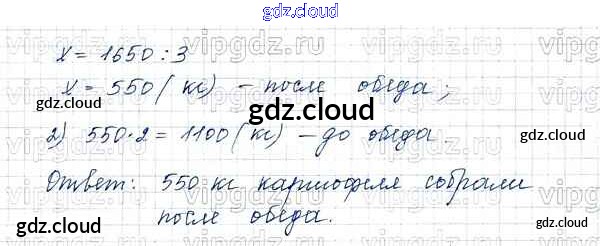 gdz.cloud
x = 1650 : 3
x = 550 (кг) – после обеда;
2) 550·2 = 1100 (кг) – до обеда.
Ответ: 550 кг картофеля собрали
после обеда.
gdz.cloud
gdz.cloud
gdz.cloud
gdz.cloud
gdz.cloud
vipgdz.ru
vipgdz.ru
vipgdz.ru